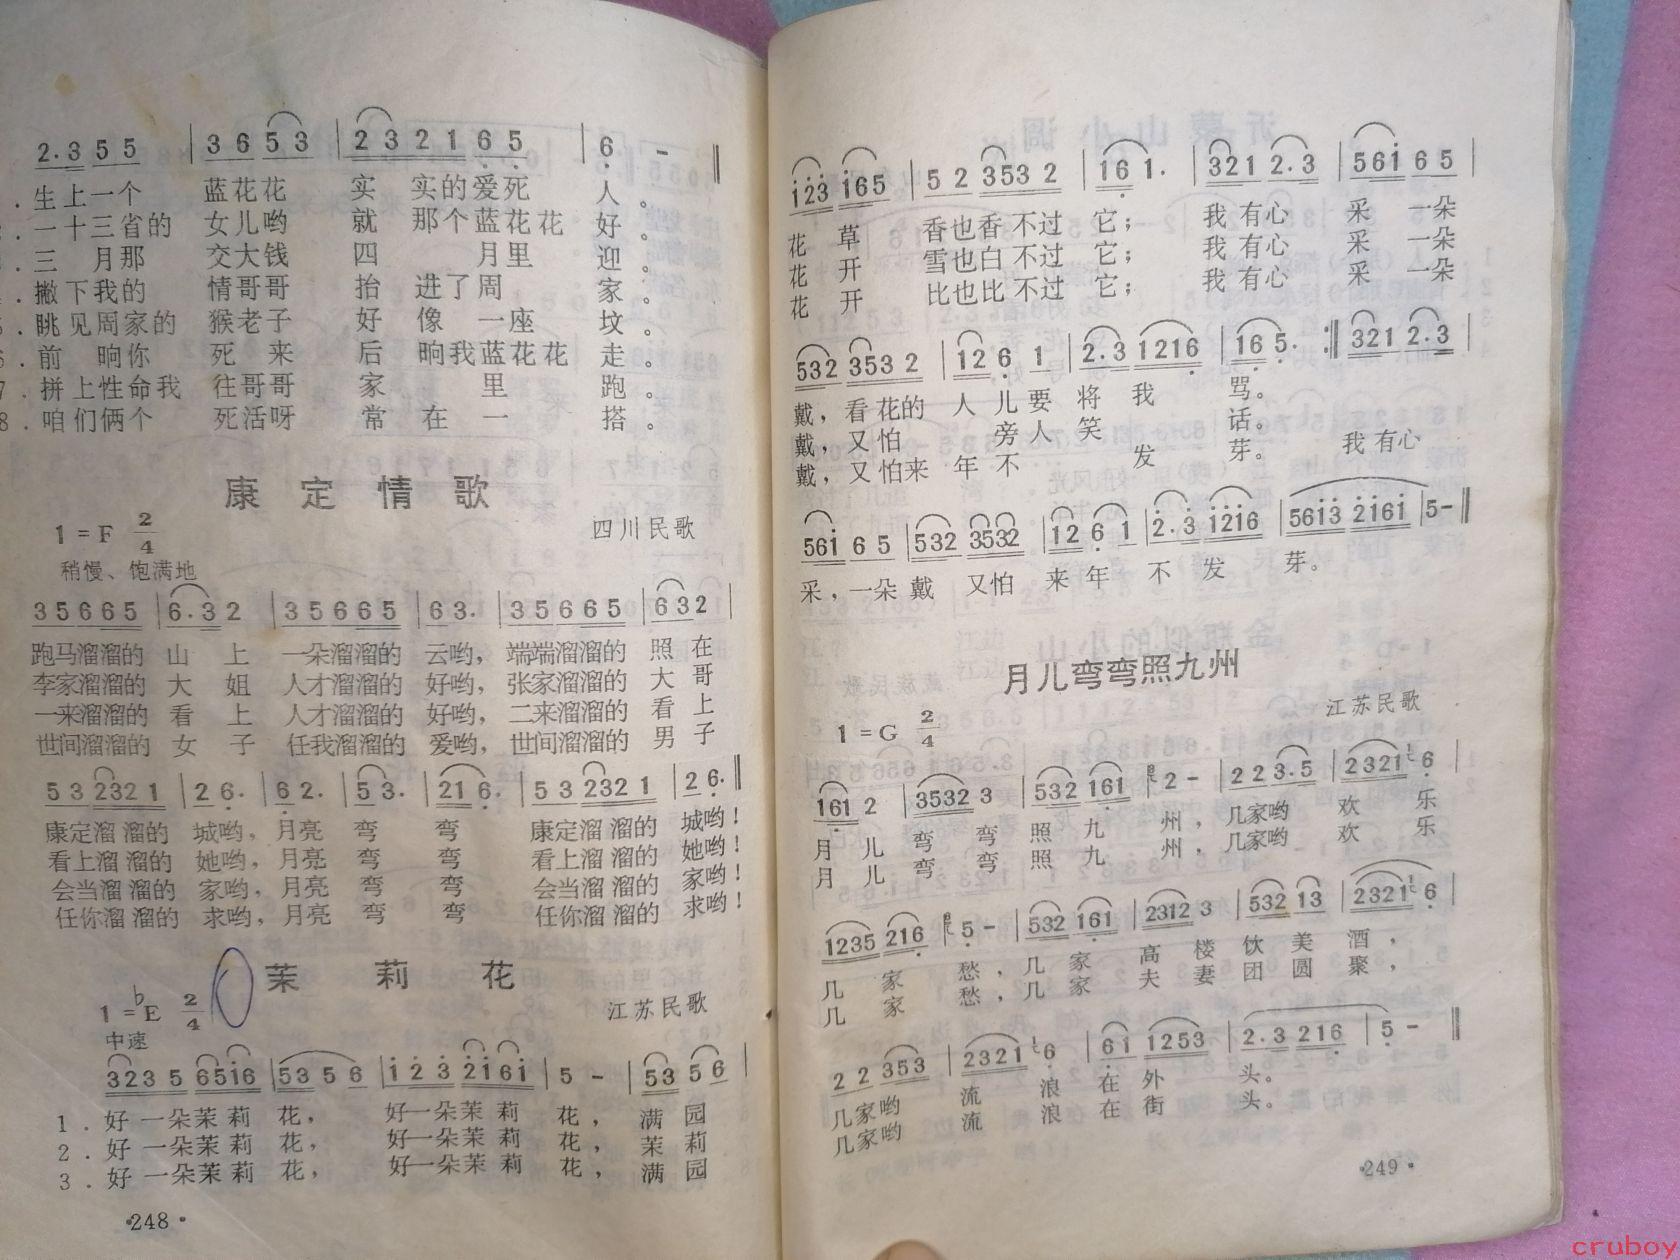 2·3 5 5 | 3 6 5 3 | 2 3 2 1 6 5 | 6 - ‖
生上一个 蓝花花 实 实的爱死 人。
一十三省的 女儿哟 就 那个蓝花花 好。
三 月那 交大钱 四 月里 迎。
撇下我的 情哥哥 抬 进了周 家。
眺见周家的 猴老子 好 像 一座 坟。
6. 前 晌你 死 来 后 晌我蓝花花 走。
7. 拼上性命我 往哥哥 家 里 跑。
8. 咱们俩个 死活呀 常 在 一 搭。
康定情歌
1=F 2/4
四川民歌
稍慢、饱满地
3 5 6 6 5 | 6·3 2 | 3 5 6 6 5 | 6 3· | 3 5 6 6 5 | 6 3 2 |
跑马溜溜的 山 上 一朵溜溜的 云哟, 端端溜溜的 照 在
李家溜溜的 大 姐 人才溜溜的 好哟, 张家溜溜的 大 哥
一来溜溜的 看 上 人才溜溜的 好哟, 二来溜溜的 看 上
世间溜溜的 女 子 任我溜溜的 爱哟, 世间溜溜的 男 子
5 3 2 3 2 1 | 2 6· | 6 2· | 5 3· | 2 1 6· | 5 3 2 3 2 1 | 2 6· ‖
康定溜溜的 城哟, 月亮 弯 弯 康定溜溜的 城哟!
看上溜溜的 她哟, 月亮 弯 弯 看上溜溜的 她哟!
会当溜溜的 家哟, 月亮 弯 弯 会当溜溜的 家哟!
任你溜溜的 求哟, 月亮 弯 弯 任你溜溜的 求哟!
茉莉花
1=♭E 2/4
江苏民歌
中速
3 2 3 5 6 5 i 6 | 5 3 5 6 | i 2 3 2 i 6 i | 5 - | 5 3 5 6 |
1. 好一朵茉莉 花, 好一朵茉莉 花, 满 园
2. 好一朵茉莉 花, 好一朵茉莉 花, 茉 莉
3. 好一朵茉莉 花, 好一朵茉莉 花, 满 园
·248·
i 2 3 i 6 5 | 5 2 3 5 3 2 | 1 6 1· | 3 2 1 2·3 | 5 6 i 6 5 |
花 草 香也香不过 它; 我有心 采 一朵
花 开 雪也白不过 它; 我有心 采 一朵
花 开 比也比不过 它; 我有心 采 一朵
5 3 2 3 5 3 2 | 1 2 6 1 | 2·3 1 2 1 6 | 1 6 5· :‖ 3 2 1 2·3 |
戴, 看花的 人儿要 将 我 骂。
戴, 又怕 旁人 笑 话。
戴, 又怕来 年不 发 芽。 我有心
5 6 i 6 5 | 5 3 2 3 5 3 2 | 1 2 6 1 | 2·3 i 2 i 6 | 5 6 i 3 2 i 6 i | 5 - ‖
采, 一朵 戴 又怕 来年 不 发 芽。
月儿弯弯照九州
江苏民歌
1=G 2/4
1 6 1 2 | 3 5 3 2 3 | 5 3 2 1 6 1 | 2 - | 2 2 3·5 | 2 3 2 1 6 |
月 儿 弯 弯 照 九 州, 几家哟 欢 乐
月 儿 弯 弯 照 九 州, 几家哟 欢 乐
1 2 3 5 2 1 6 | 5 - | 5 3 2 1 6 1 | 2 3 1 2 3 | 5 3 2 1 3 | 2 3 2 1 6 |
几 家 愁, 几 家 高 楼 饮 美 酒,
几 家 愁, 几 家 夫 妻 团 圆 聚,
2 2 3 5 3 | 2 3 2 1 6 | 6 1 1 2 5 3 | 2·3 2 1 6 | 5 - ‖
几家哟 流 浪 在 外 头。
几家哟 流 浪 在 街 头。
·249·
cruboy